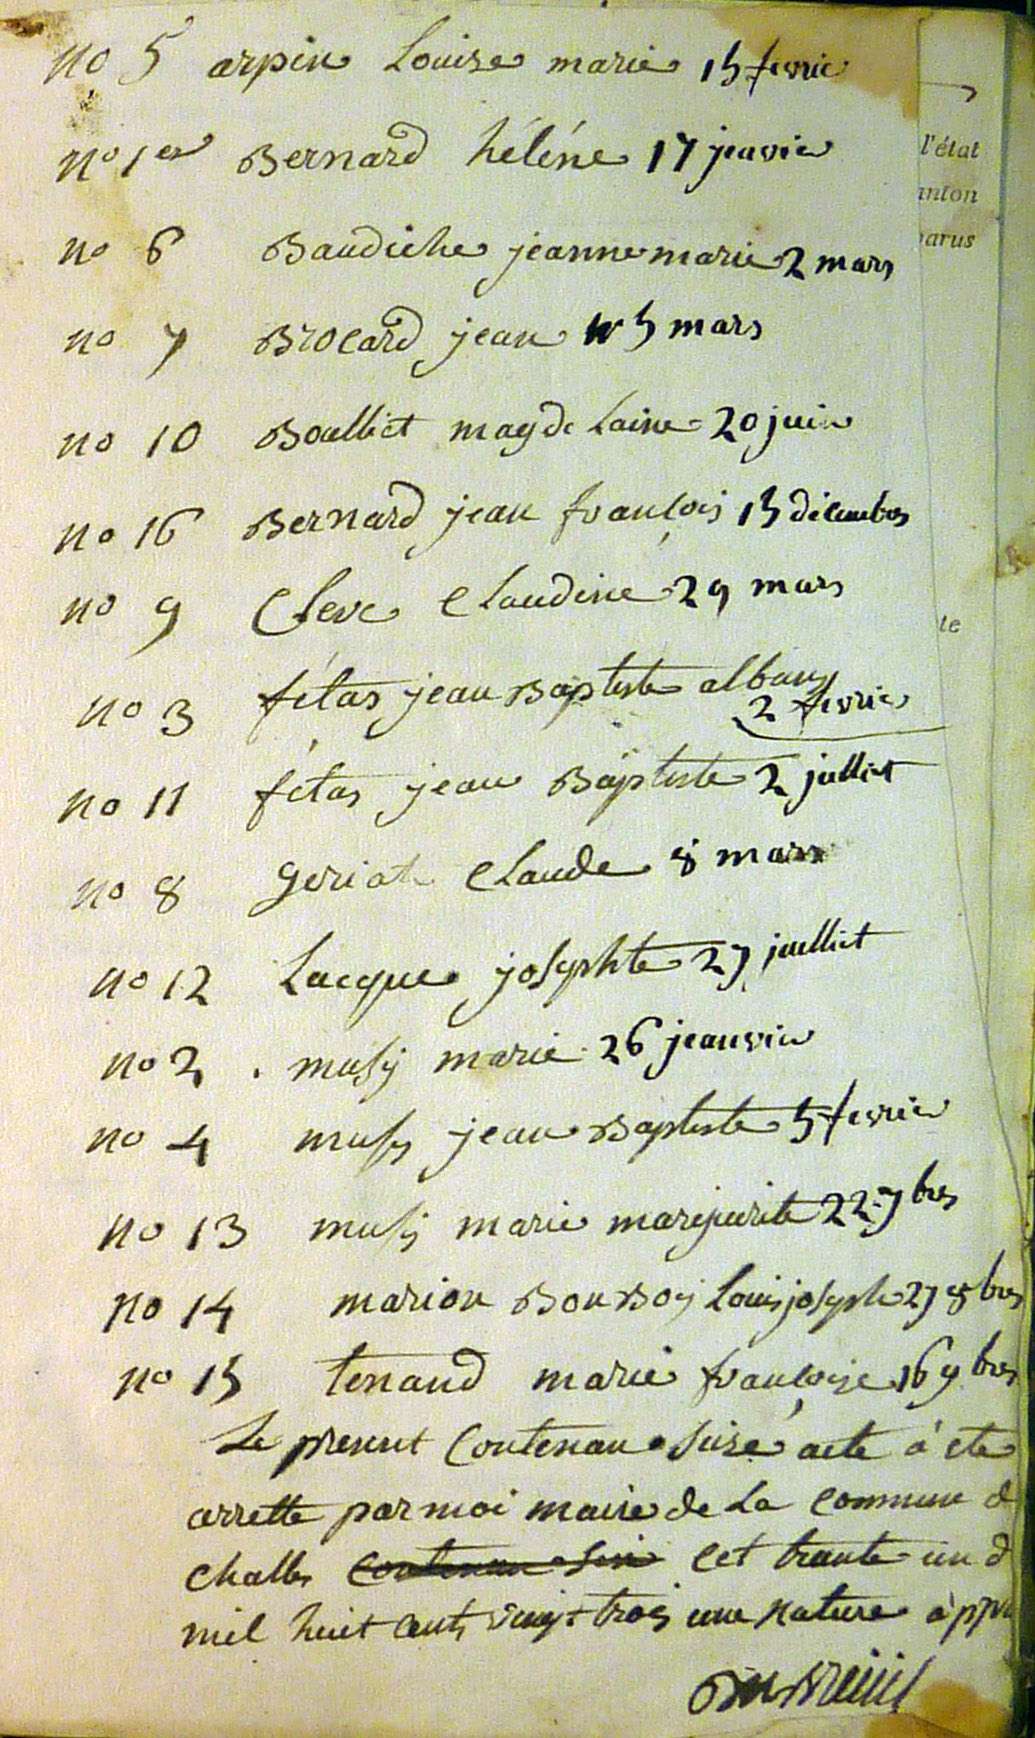 no 5 arpin Louise marie 15 fevrie
no 1er Bernard hélène 17 jeanvie
no 6 Baudiche jeanne marie 2 mars
no 7 Brocard jean 5 mars
no 10 Boulliet magdelaine 20 juin
no 16 Bernard jean françois 15 décembre
no 9 Clerc Claudine 29 mars
no 3 fétas jean Baptiste albany
2 fevrie
no 11 fétas jean Baptiste 2 julliet
no 8 goriat Claude 8 mars
no 12 Lacque josephte 27 juilliet
no 2 musy marie 26 jeanvie
no 4 musy jean Baptiste 5 fevrie
no 13 musy marie marguerite 22 7bre
no 14 marion Bonboy Louis joseph 27 8bre
no 15 tenand marie françoise 16 9bre
Le present Contenan seize acte à ete
arrette par moi maire de La commune d
challes cet trante un d
mil huit cents vingt trois une rature appr
Dubreuil
l'état
anton
arus
te